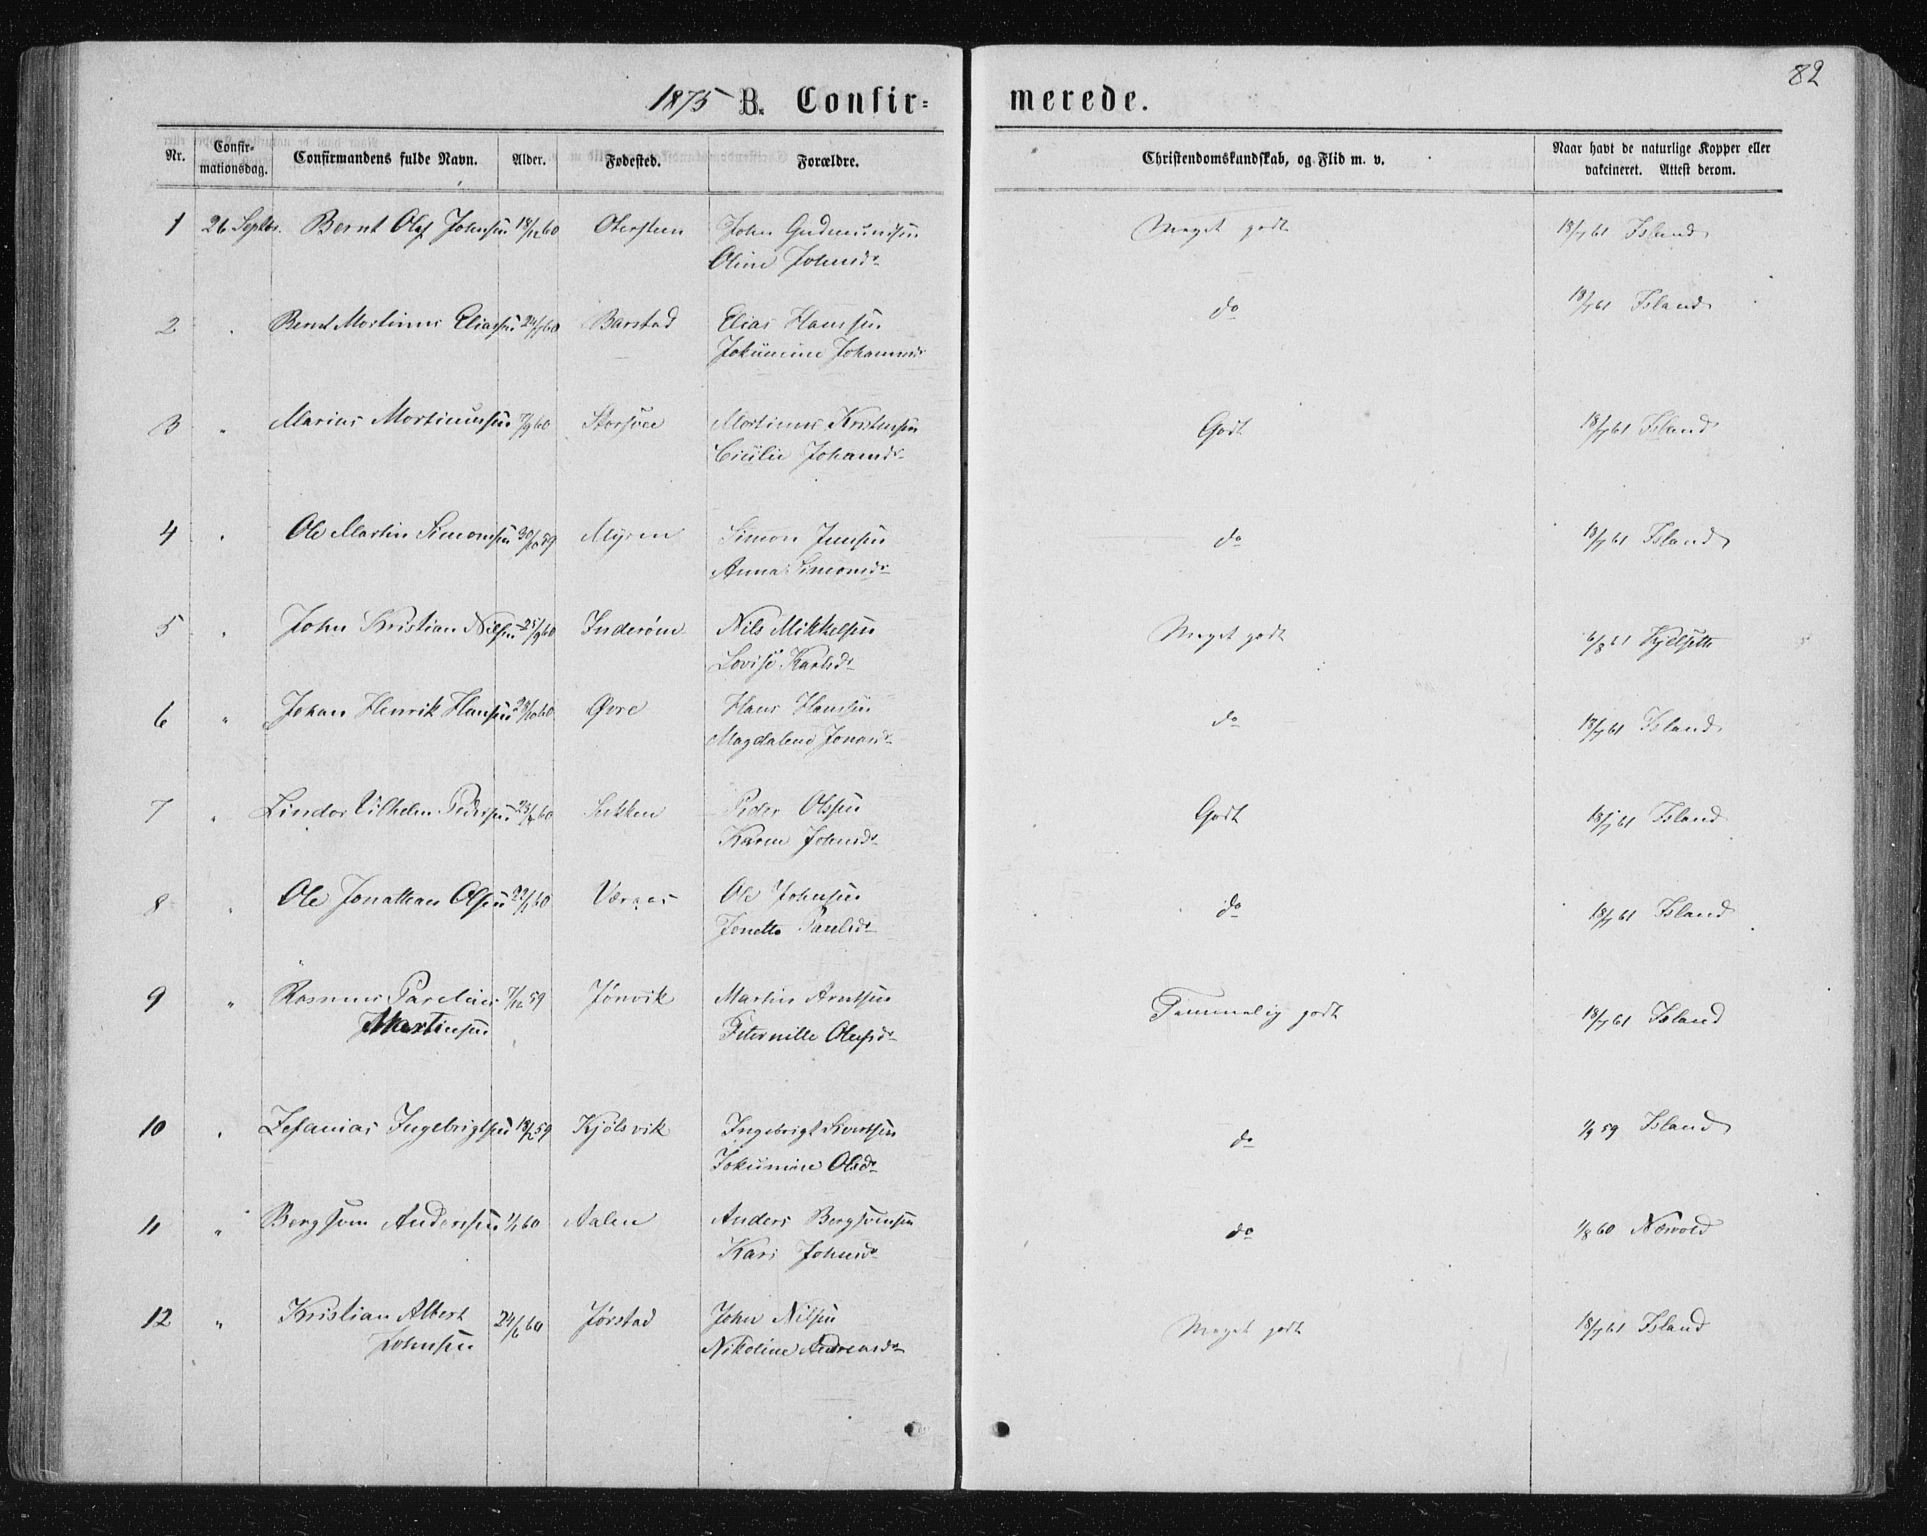 82
1875 B. Confir= merede.
Nr. Confir-mationsdag. Confirmandens fulde Navn. Alder. Fødested. Forældre. Christendomskundskab, og Flid m. v. Naar havt de naturlige Kopper eller vakcineret. Attest derom.
1 26 Septbr. Bernt Olaf Johnsen 18/12 60 Otersteen John Gudmundsen Meget godt 18/7 61 Island
Oline Johnsdr
2 " Bernt Martinus Eliassen 24/ 60 Barstad Elias Hanssen do 18/7 61 Island
Jokumine Johannesdr
3 " Marius Martinussen 7/9 60 Martinus Kristensen Godt 18/7 61 Island
Cicilie Johansdr
4 " Ole Martin Simonsen 30/10 59 Myren Simon Jensen do 18/7 61 Island
Anna Simonsdr
5 " John Kristian Nilsen 25/9 60 Inderöen Nils Mikkelsen Meget godt 6/8 61
Lovise Karlsdr
6 " Johan Henrik Hansen 28/10 60 Hans Hanssen do 18/7 61 Island
Magdalena Jonasdr
7 " Lindor Vilhelm Pedersen 23/4 60 Sekken Peder Olssen Godt 18/7 61 Island
Karen Johnsdr
8 " Ole Jonathan Olsen 22/ 60 Værnes Ole Johnsen do 18/7 61 Island
Jonetta Paulsdr
9 " Rasmus Parelius 7/12 59 Jönvik Martin Arntsen Temmelig godt 18/7 61 Island
Martinsen Peternille Olausdr
10 " Zefanias Ingebrigtsen 18/2 59 Kjölsvik Ingebrigt Sivertsen do 1/9 59 Island
Jokumine Olsdr
11 " Bergsven Anderssen 1/1 60 Aalen Anders Bergsvensen do 1/8 60 Nævold
Kari Johnsdr
12 " Kristian Albert 24/6 60 Jørstad John Nilsen Meget godt 18/7 61 Island
Johnsen Nikoline Andreasdr